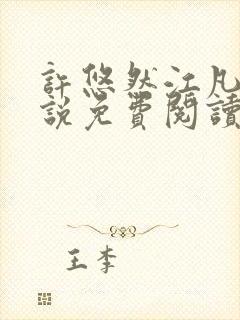 許悠然江凡
說免費閱讀
王李